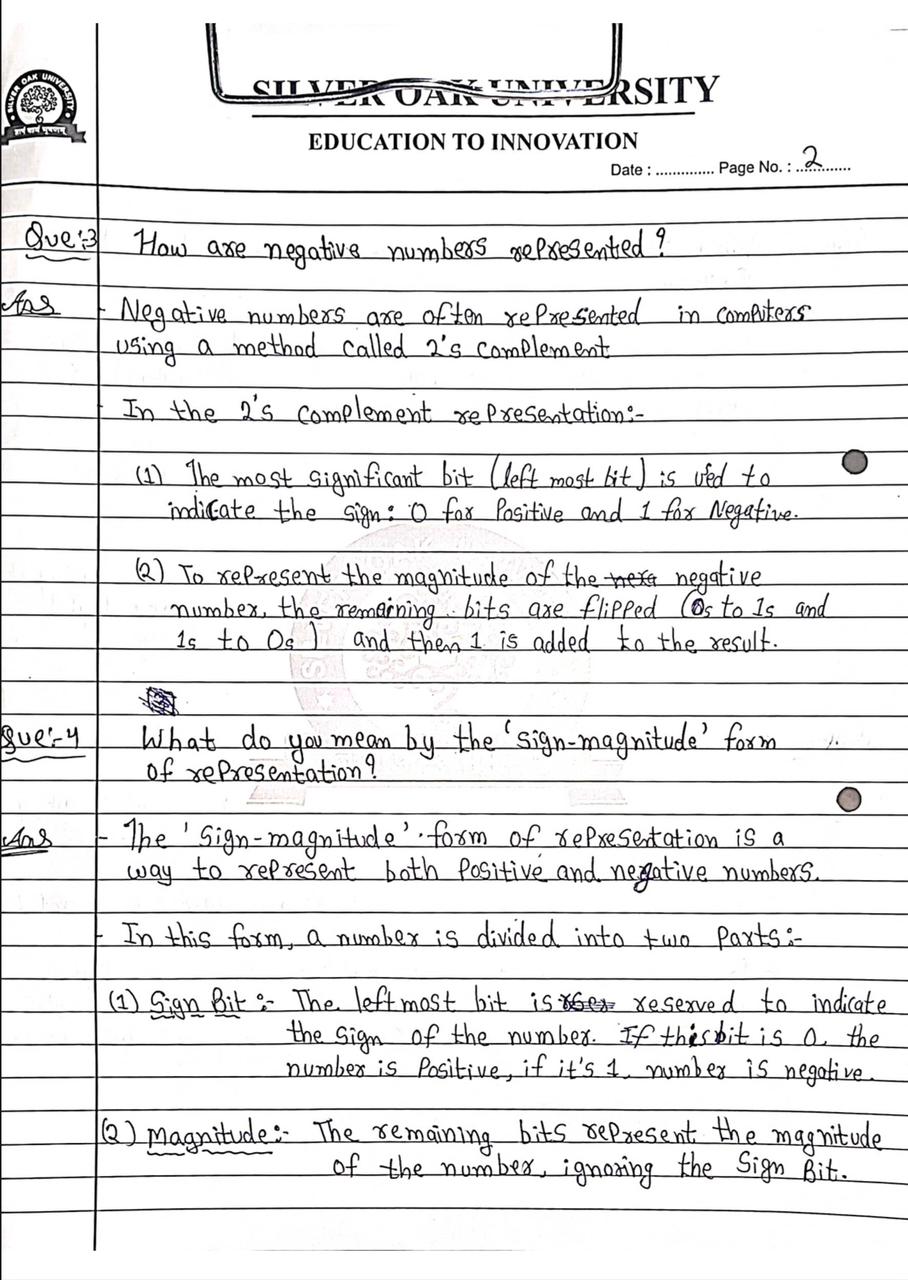 SILVER OAK UNIVERSITY
SILVER OAK UNIVERSITY
EDUCATION TO INNOVATION
Date : .............. Page No. : 2
Que:-3 How are negative numbers represented?
Ans - Negative numbers are often represented in computers
using a method called 2's complement
In the 2's complement representation:-
(1) The most significant bit (left most bit) is used to
indicate the sign: 0 for Positive and 1 for Negative.
(2) To represent the magnitude of the negative
number, the remaining bits are flipped (0s to 1s and
1s to 0s) and then 1 is added to the result.
Que:-4 What do you mean by the 'sign-magnitude' form
of representation?
Ans - The 'Sign-magnitude' form of representation is a
way to represent both Positive and negative numbers.
- In this form, a number is divided into two Parts:-
(1) Sign Bit :- The leftmost bit is reserved to indicate
the sign of the number. If this bit is 0, the
number is Positive, if it's 1, number is negative.
(2) Magnitude:- The remaining bits represent the magnitude
of the number, ignoring the Sign Bit.